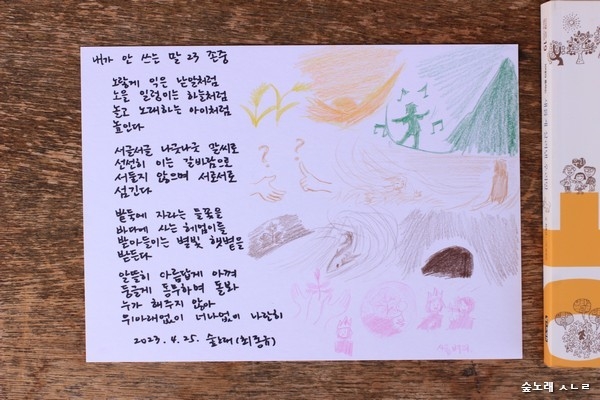 내가 안 쓰는 말 23 존중
노랗게 익은 낟알처럼
노을 일렁이는 하늘처럼
놀고 노래하는 아이처럼
높인다
서글서글 나긋나긋 말씨로
선선히 이는 갈바람으로
서둘지 않으며 서로서로
섬긴다
밭둑에 자라는 들꽃을
바다에 사는 헤엄이를
받아들이는 별빛 햇볕을
받든다
알뜰히 아름답게 아껴
둥글게 동무하며 돌봐
누가 해주지 않아
위아래없이 너나없이 나란히
2023. 4. 25. 숲노래 (최종규)
? ?
숲노래 ㅅㄴㄹ